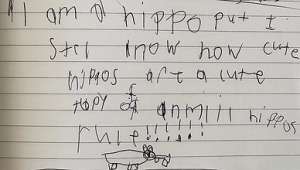 I am a hippo put I
stel know how cute
hippos are a cute
tipy of anmill hippos
rule!!!!!!